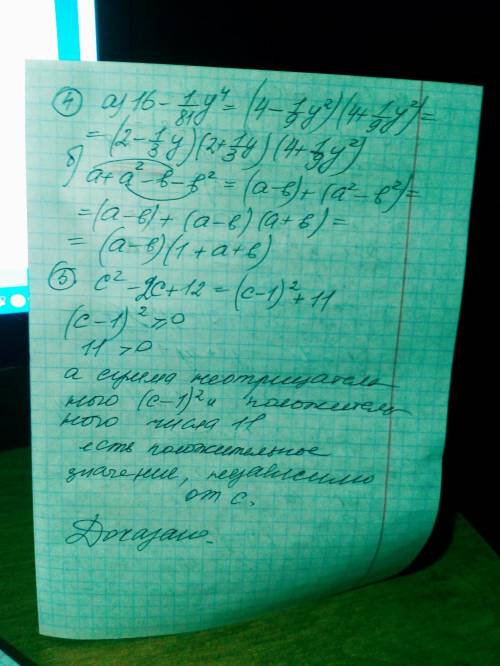 ④ а) 16 - 1/81 y⁴ = (4 - 1/9 y²)(4 + 1/9 y²) =
= (2 - 1/3 y)(2 + 1/3 y)(4 + 1/9 y²)
б) а + а² - в - в² = (а - в) + (а² - в²) =
= (а - в) + (а - в)(а + в) =
= (а - в)(1 + а + в)
⑤ с² - 2с + 12 = (с - 1)² + 11
(с - 1)² ≥ 0
11 > 0
а сумма неотрицатель
ного (с - 1)² и положитель
ного числа 11
есть положительное
значение, независимо
от с.
Доказано.